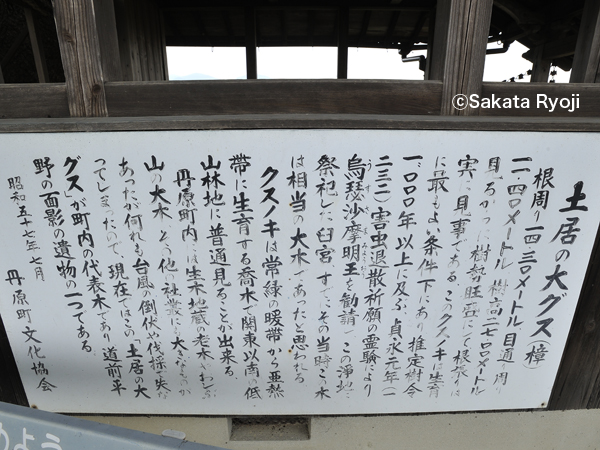 土居の大グス（樟）
根周り一四・三〇メートル、目通り周り
一一・四〇メートル、樹高一七・〇〇メートル
見るからに樹勢旺盛にて根張りは
実に見事である。このクスノキは生育
に最もよい条件下にあり推定樹令
一、〇〇〇年以上に及ぶ。貞永元年（一
二三二）害虫退散祈願の霊験により
烏瑟沙摩明王を勧請、この浄地に
祭祀した臼宮 すでにその当時この木
は相当の大木であったと思われる
クスノキは常緑の暖帯から亜熱
帯に生育する喬木で関東以南の低
山林地に普通見ることが出来る。
丹原町内には生木地蔵の老木
山の大木 その他の社叢にも大きなものが
あったが何れも台風の倒伏や伐採で失な
ってしまったので、現在ではこの「土居の大
グス」が町内の代表木であり道前平
野の面影の遺物の一つである。
昭和五十七年七月
丹原町文化協会
©Sakata Ryoji
めよう